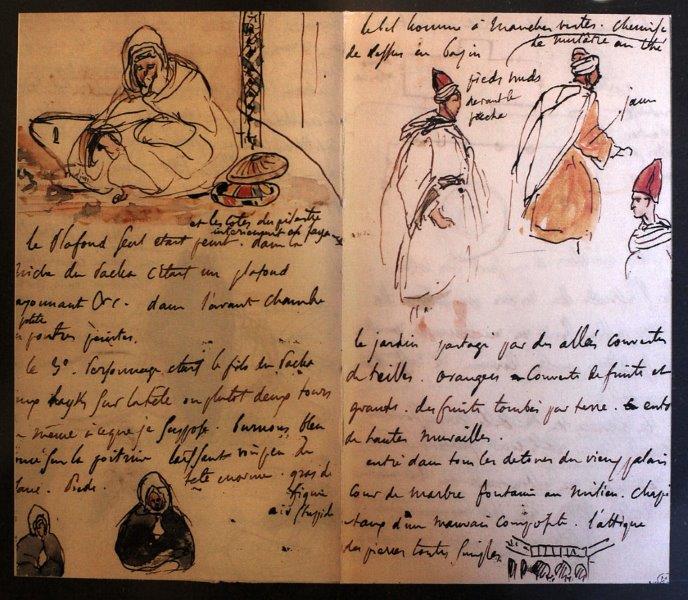 et les côtés du pilastre
intérieurement et
le Plafond seul était peint. dans la
niche du Pacha était un plafond
rayonnant &c. dans l'avant chambre
petite
poutres peintes.
le 3e. Personnage était le fils du Pacha
hayks sur la tête ou plutôt deux tours
même à ce que je suppose. Burnous bleu
sur la poitrine laissant voir un peu de
tête énorme. gras de
figure
air stupide
le bel homme à manches vertes. chemise
de mulâtre au thé
de dessus en bazin
pieds nuds
devant le
pacha
jaune
le jardin partagé par des allées couvertes
de treilles. orangers couverts de fruits et
grands. des fruits tombés par terre. entouré
de hautes murailles.
entré dans tous les détours du vieux palais
cour de marbre fontaine au milieu. chapi
teaux d'un mauvais composite. l'attique
des pierres toutes simples